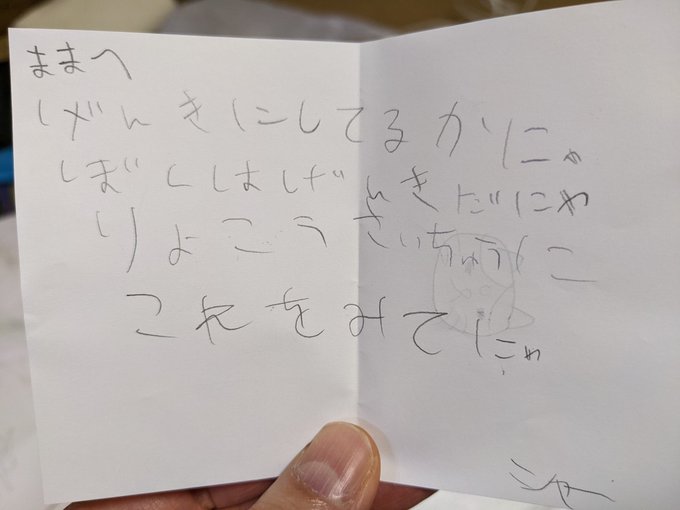 ままへ
げんきにしてるかにゃ
ぼくはげんきだにゃ
りょこうさいちゅうに
これをみてにゃ
シャー